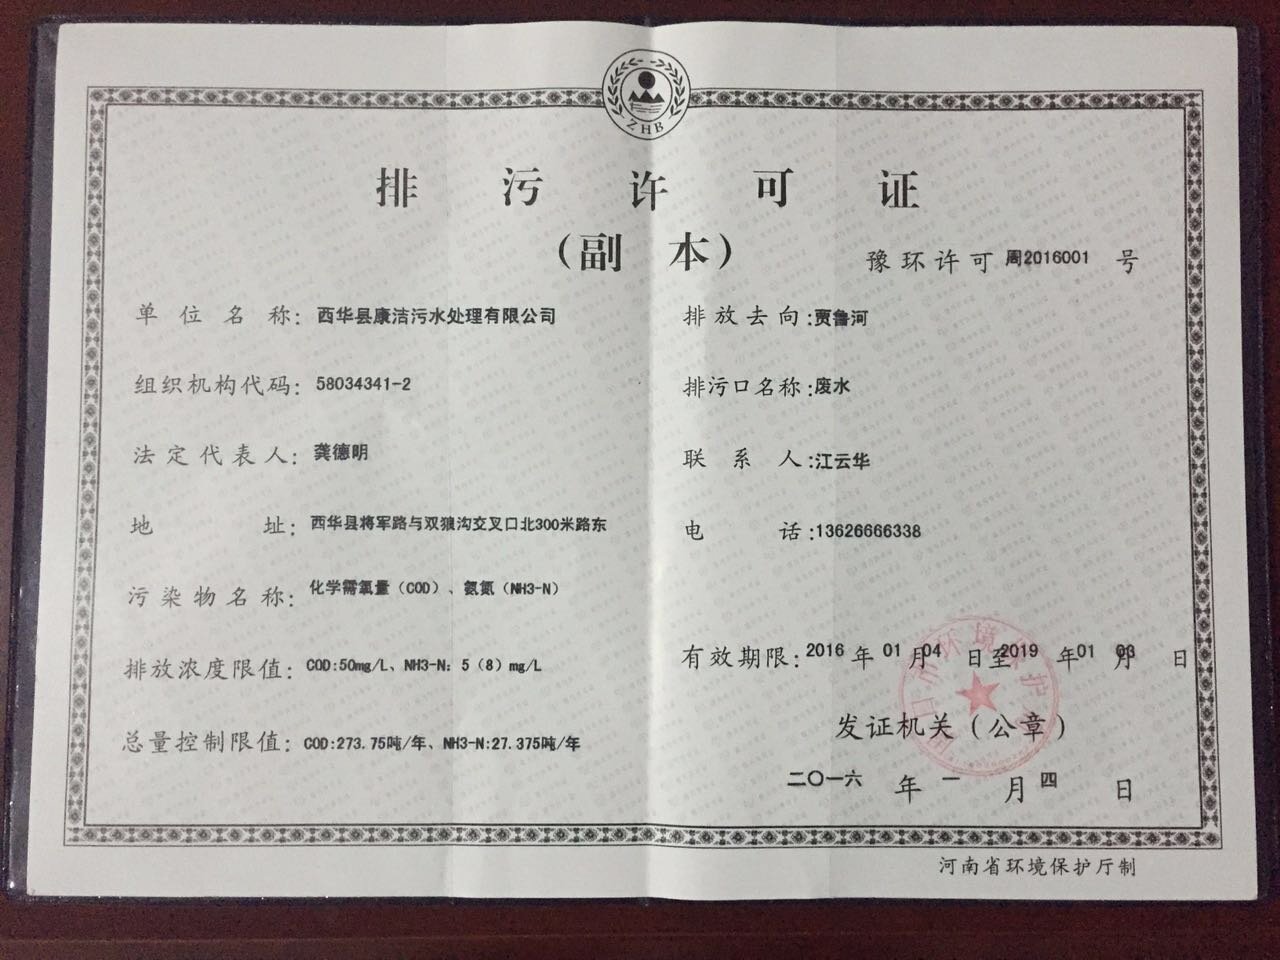 ZHB
排污许可证
（副本）
豫环许可 周2016001 号
单位名称：西华县康洁污水处理有限公司
排放去向：贾鲁河
组织机构代码：58034341-2
排污口名称：废水
法定代表人：龚德明
联系人：江云华
地址：西华县将军路与双狼沟交叉口北300米路东
电话：13626666338
污染物名称：化学需氧量（COD）、氨氮（NH3-N）
排放浓度限值：COD:50mg/L、NH3-N：5（8）mg/L
有效期限：2016年01月04日至2019年01月03日
总量控制限值：COD:273.75吨/年、NH3-N:27.375吨/年
发证机关（公章）
二〇一六年一月四日
河南省环境保护厅制
市环境保护